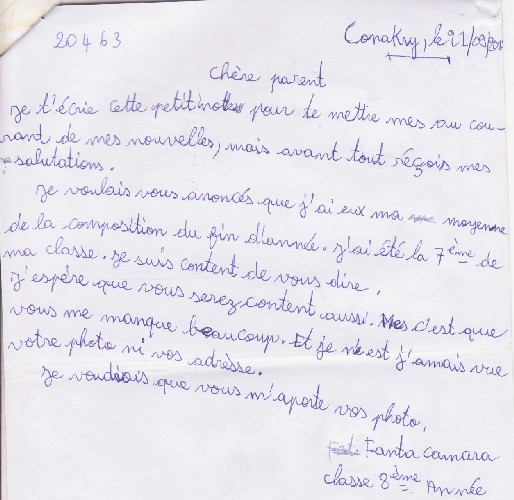 20463
Conakry, le 21/09/
chère parent
je t'écrie cette petit mot pour te mettre mes au cou-
rand de mes nouvelles, mais avant tout réçois mes
salutations.
Je voulais vous anoncés que j'ai eux ma moyenne
de la composition du fin d'année. J'ai été la 7ème de
ma classe. Je suis content de vous dire,
J'espère que vous serez content aussi. Mes c'est que
vous me manque beaucoup. Et je n'est j'amais vue
votre photo ni vos adrèsse.
Je voudrais que vous m'aporte vos photo,
Fanta camara
classe 8ème Année